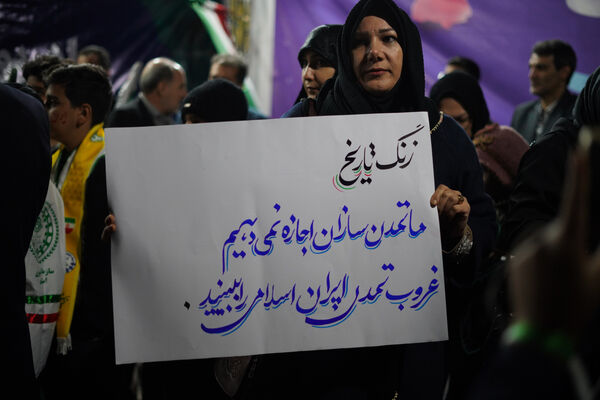 زنگ تاریخ
ما تمدن سازان اجازه نمی دهیم
غروب تمدن ایران اسلامی را ببینید.